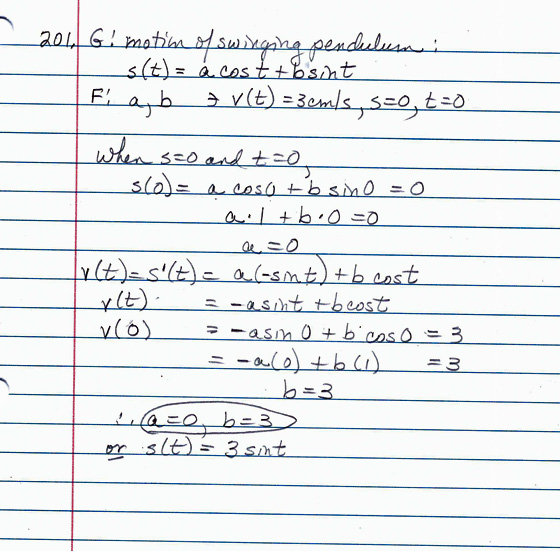 201. G: motion of swinging pendulum:
s(t) = a cos t + b sin t
F: a, b ∋ v(t) = 3cm/s, s=0, t=0
When s=0 and t=0,
s(0) = a cos 0 + b sin 0 = 0
a·1 + b·0 = 0
a = 0
v(t) = s'(t) = a(-sin t) + b cos t
v(t) = -a sin t + b cos t
v(0) = -a sin 0 + b cos 0 = 3
= -a(0) + b(1) = 3
b = 3
∴ a=0, b=3
or s(t) = 3 sin t